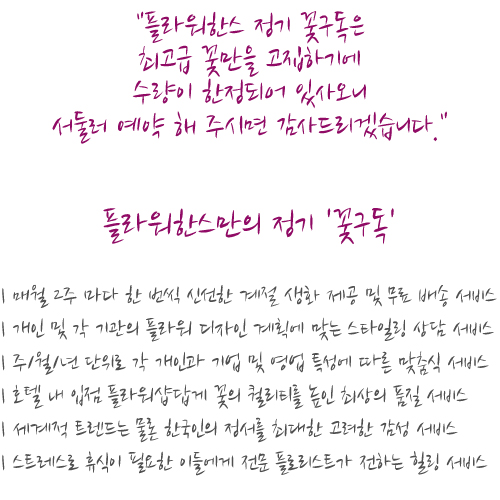 "플라워한스 정기 꽃구독은
최고급 꽃만을 고집하기에
수량이 한정되어 있사오니
서둘러 예약 해 주시면 감사드리겠습니다."
플라워한스만의 정기 '꽃구독'
| 매월 2주 마다 한 번씩 신선한 계절 생화 제공 및 무료 배송 서비스
| 개인 및 각 기관의 플라워 디자인 계획에 맞는 스타일링 상담 서비스
| 주/월/년 단위로 각 개인과 기업 및 영업 특성에 따른 맞춤식 서비스
| 호텔 내 입점 플라워샵답게 꽃의 퀄리티를 높인 최상의 품질 서비스
| 세계적 트렌드는 물론 한국인의 정서를 최대한 고려한 감성 서비스
| 스트레스로 휴식이 필요한 이들에게 전문 플로리스트가 전하는 힐링 서비스